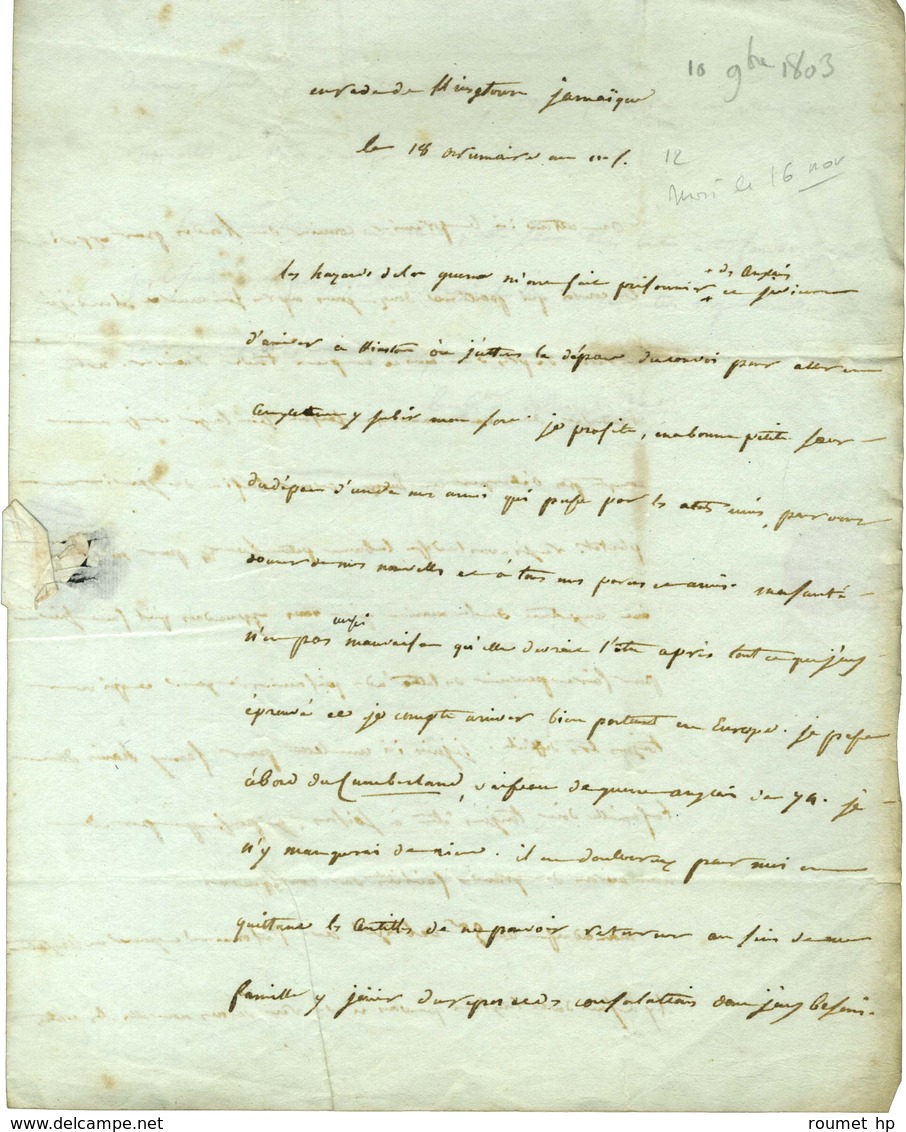 10 9bre 1803
en rade de Kingtown jamaïque
le 18 brumaire an 12
12
mori le 16 nov
les hazards de la guerre m'ont fait prisonnier + des Anglais
+ et je viens
d'ariver a Kinston ou j'attens le départ du convoi pour aller en
angleterre y subir mon sort. je profite, ma bonne petite soeur
du départ d'un de mes amis qui passe par les etats unis, pour vous
donner de mes nouvelles et à tous nos parens et amis. ma santé
n'est pas aussi mauvaise qu'elle devrait l'être après tout ce que j'ay
éprouvé et je compte ariver bien portant en Europe. je passe
à bord du Cumberland, vaisseau de guerre anglais de 74. je
n'y manquerai de rien. il est douloureux pour moi en
quittant les antilles de ne pouvoir retourner au sein de ma
famille y jouir du repos et des consolations dont j'ay besoin.
roumet hp